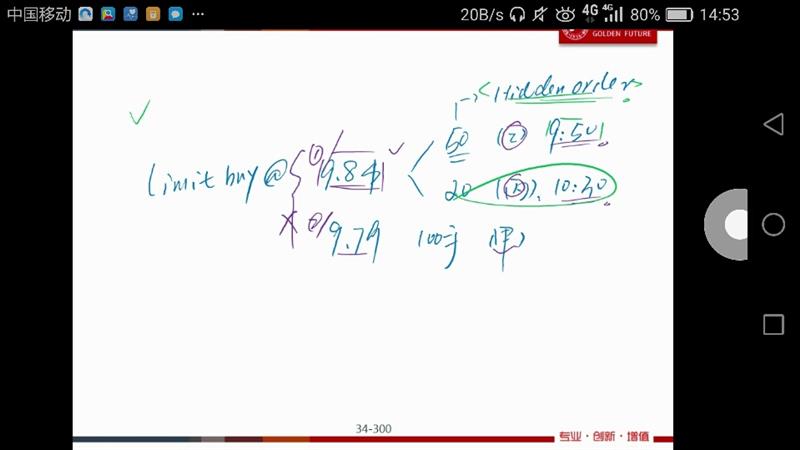 中国移动 20B/s 4G 4G 80% 14:53
GOLDEN FUTURE
Hidden order
50 (乙) 9:50
limit buy @ ① 9.84
20 10:30
② 9.79 100手 (甲)
34-300
专业·创新·增值